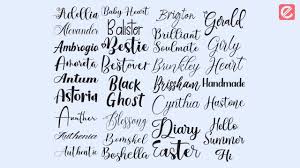 Adellia
Alexander
Ambrogio
Amoreta
Antum
Astoria
Anuther
Authenia
Authentic
Baby Heart
Balister
Bestie
Bestover
Black
Ghost
Blessong
Bomshel
Boshella
Brigton
Brilliant
Soulmate
Bunkley
Brissham
Cynthia
Diary
Easter
Gerald
Girly
Heart
Handmade
Hastone
Hello
Summer
H